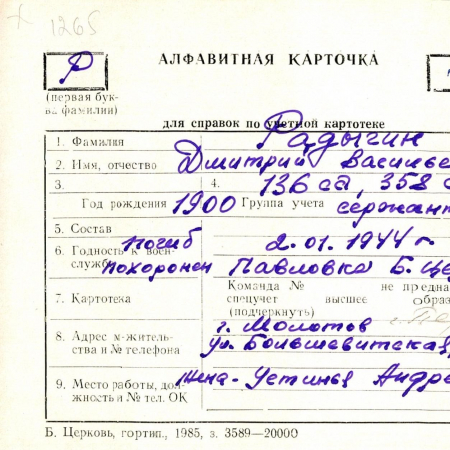 1265
Р
АЛФАВИТНАЯ КАРТОЧКА
(первая бук-
ва фамилии)
для справок по учетной картотеке
1. Фамилия Радыгин
2. Имя, отчество Дмитрий Василье
3. 4. 136 сд, 358 с
Год рождения 1900 Группа учета сержант
5. Состав
погиб 2.01.1944 г.
6. Годность к воен-
службе похоронен Павловка Б. Це
7. Картотека Команда № не предна
спецучет высшее образ
(подчеркнуть)
8. Адрес м-жительст-
ва и № телефона г. Молотов
ул. Большевитская,
9. Место работы, дол-
жность и № тел. ОК жена - Устинья Андре
Б. Церковь, гортип., 1985, з. 3589—20000